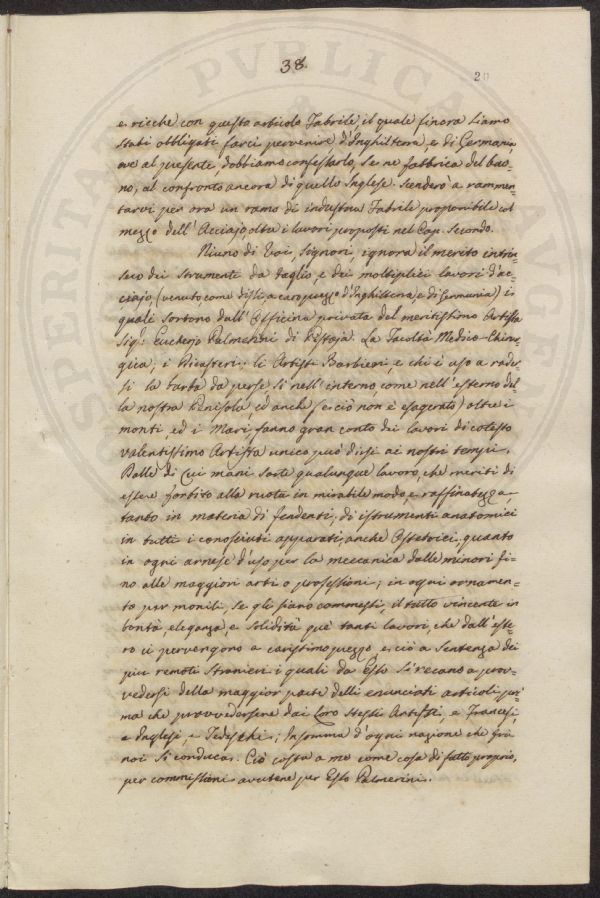 38.
20
e ricche con questo articolo Fabrile, il quale finora siamo
stati obbligati farci pervenire, d'Inghilterra, e di Germania,
ove al presente, dobbiamo confessarlo, se ne fabbrica del buo=
no, al confronto ancora di quello Inglese. Scenderò a rammen=
tarvi per ora un ramo di industria Fabrile proponibile col
mezzo dell'Acciajo oltre i lavori proposti nel Cap. Secondo.
Niuno di Voi, Signori, ignora il merito intrin=
seco dei strumenti da taglio, e dei moltiplici lavori d'ac=
ciajo (venuto come dissi, a caro prezzo d'Inghilterra, e di Germania) i
quali sortono dall'Officina privata del meritissimo Artista
Sigr: Eucherio Palmerini di Pistoja. La Facoltà Medico-Chirur=
gica; i Ricastri; li Artisti Barbieri, e chi è uso a rader=
si la barba da per se sì nell'interno, come nell'esterno del=
la nostra Penisola, ed anche (e ciò non è esagerato) oltre i
monti, ed i Mari, fanno gran conto dei lavori di cotesto
valentissimo Artista unico può dirsi ai nostri tempi.
Dalle di Cui mani sorte qualunque lavoro, che meriti di
essere forbito alla ruota in mirabile modo, e raffinatezza
tanto in materia di fendenti, di istrumenti anatomici
in tutti i conosciuti apparati, anche Ostetrici, quanto
in ogni arnese d'uso per la meccanica dalle minori fi=
no alle maggiori arti o professioni; in ogni ornamen=
to per monili, se gli siano commessi, il tutto vincente in
bontà, eleganza, e solidità que' tanti lavori, che dall'este=
ro ci pervengono a carissimo prezzo, e ciò a sentenza dei
più remoti stranieri i quali da Esso si recano a prov=
vedersi della maggior parte delli enunciati articoli pri=
ma che provvedersene dai Loro stessi Artisti, e Francesi,
e Inglesi, e Tedeschi; Insomma d'ogni nazione che frà
noi si conduca. Ciò costa a me come cosa di fatto proprio,
per commissioni avutene per Esso Palmerini.